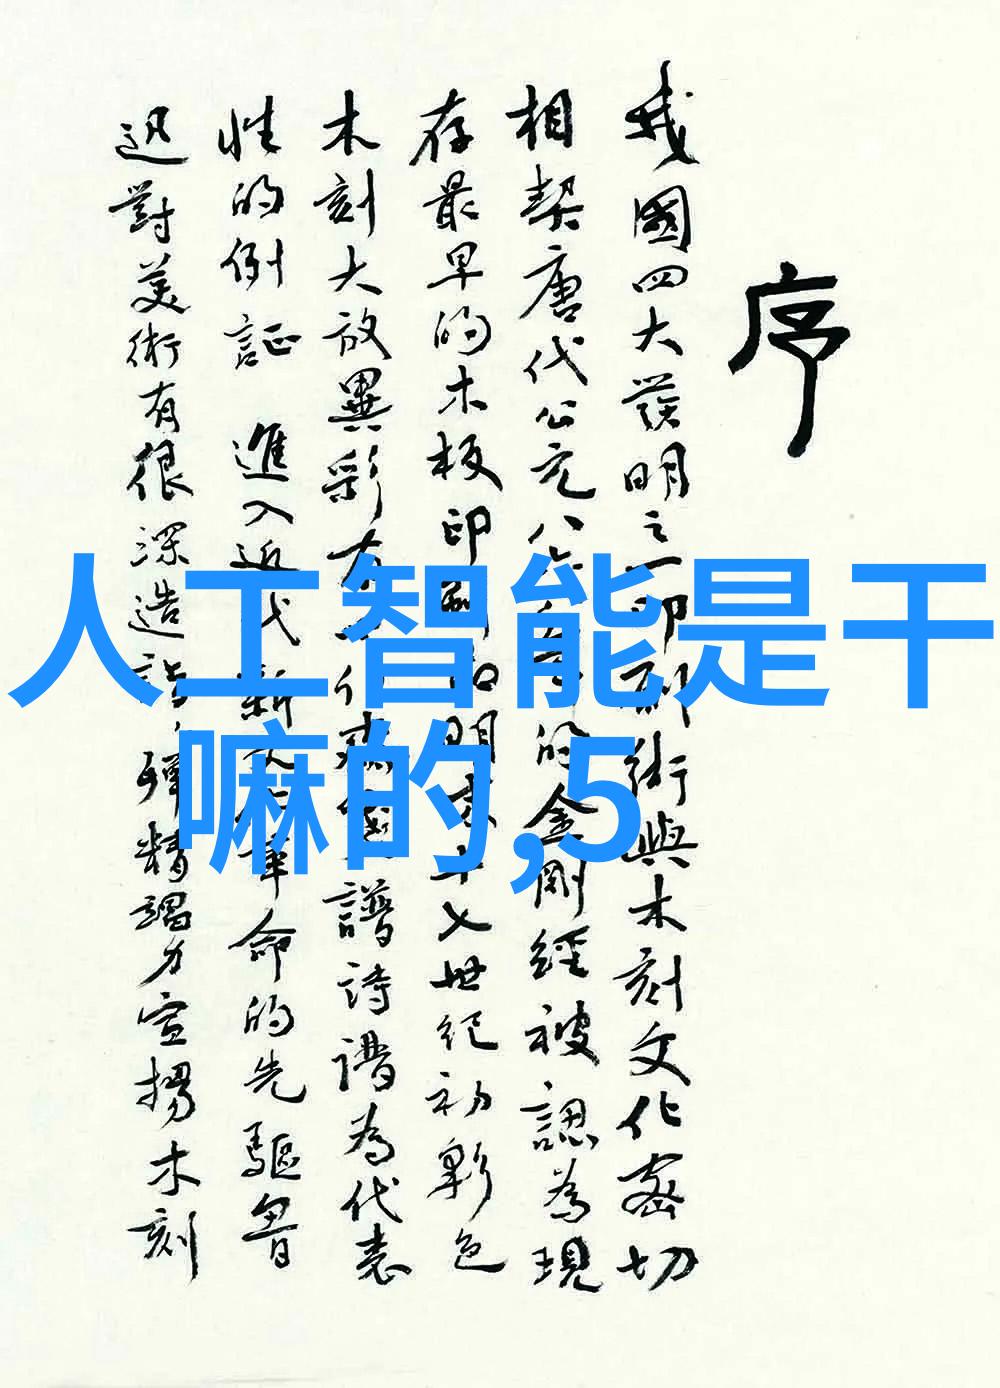 序
我國四大發明之一印刷術與木刻文化密切
相契唐代公元八六八年的金剛經被認為現
存最早的木板印刷和明末十七世紀初彩色
木刻大放異彩有十竹齋畫譜詩譜為代表
性的例証 進入近代新文化革命的先驅魯
迅對美術有很深造詣殫精竭力宣揚木刻
人工智能是干
嘛的,5